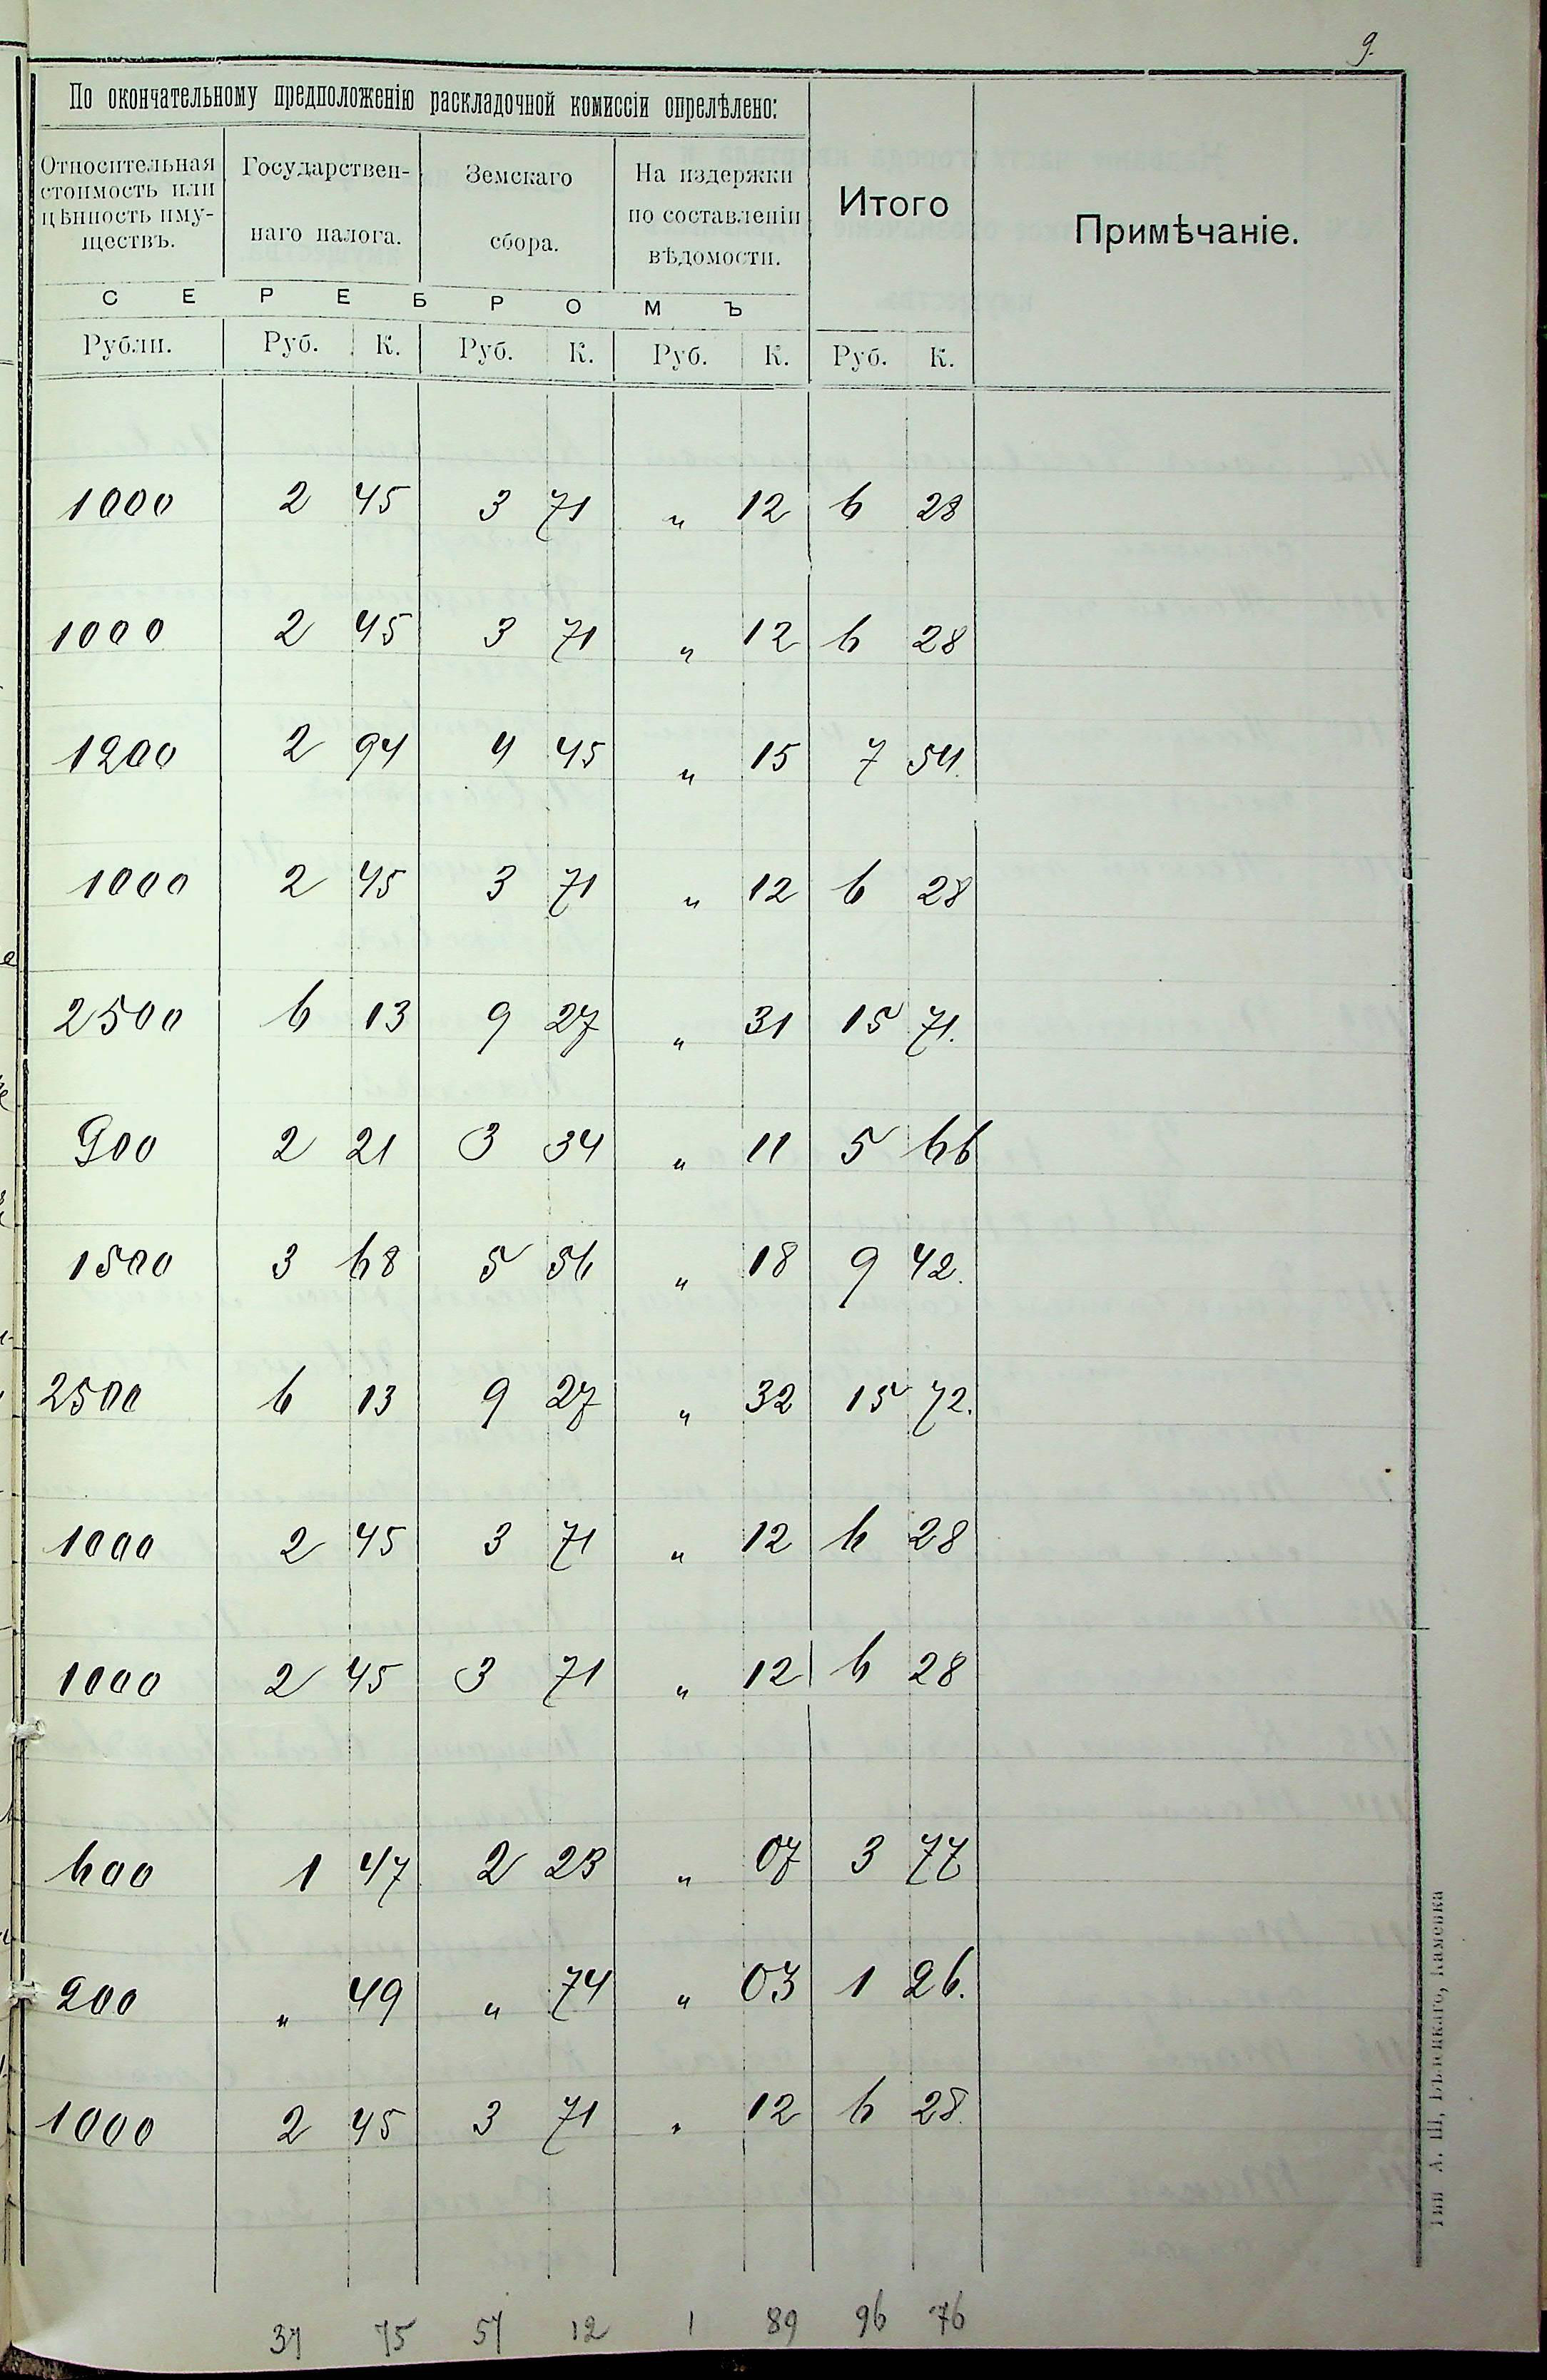 9.
По окончательному предположенію раскладочной комиссіи опрелѣлено:
Относительная стоимость или цѣнность иму-ществъ.
Государствен-наго налога.
Земскаго сбора.
На издержки по составленіи вѣдомости.
Итого
Примѣчаніе.
С Е Р Е Б Р О М Ъ
Рубли. Руб. К. Руб. К. Руб. К. Руб. К.
1000 2 45 3 71 " 12 6 28
1000 2 45 3 71 " 12 6 28
1200 2 94 4 45 " 15 7 54.
1000 2 45 3 71 " 12 6 28
2500 6 13 9 27 " 31 15 71.
900 2 21 3 34 " 11 5 66
1500 3 68 5 56 " 18 9 42.
2500 6 13 9 27 " 32 15 72.
1000 2 45 3 71 " 12 6 28
1000 2 45 3 71 " 12 6 28
600 1 47 2 23 " 07 3 77
200 " 49 " 74 " 03 1 26.
1000 2 45 3 71 " 12 6 28.
37 75 57 12 1 89 96 76
Тип А. Ш, Бѣлецкаго, Каменка